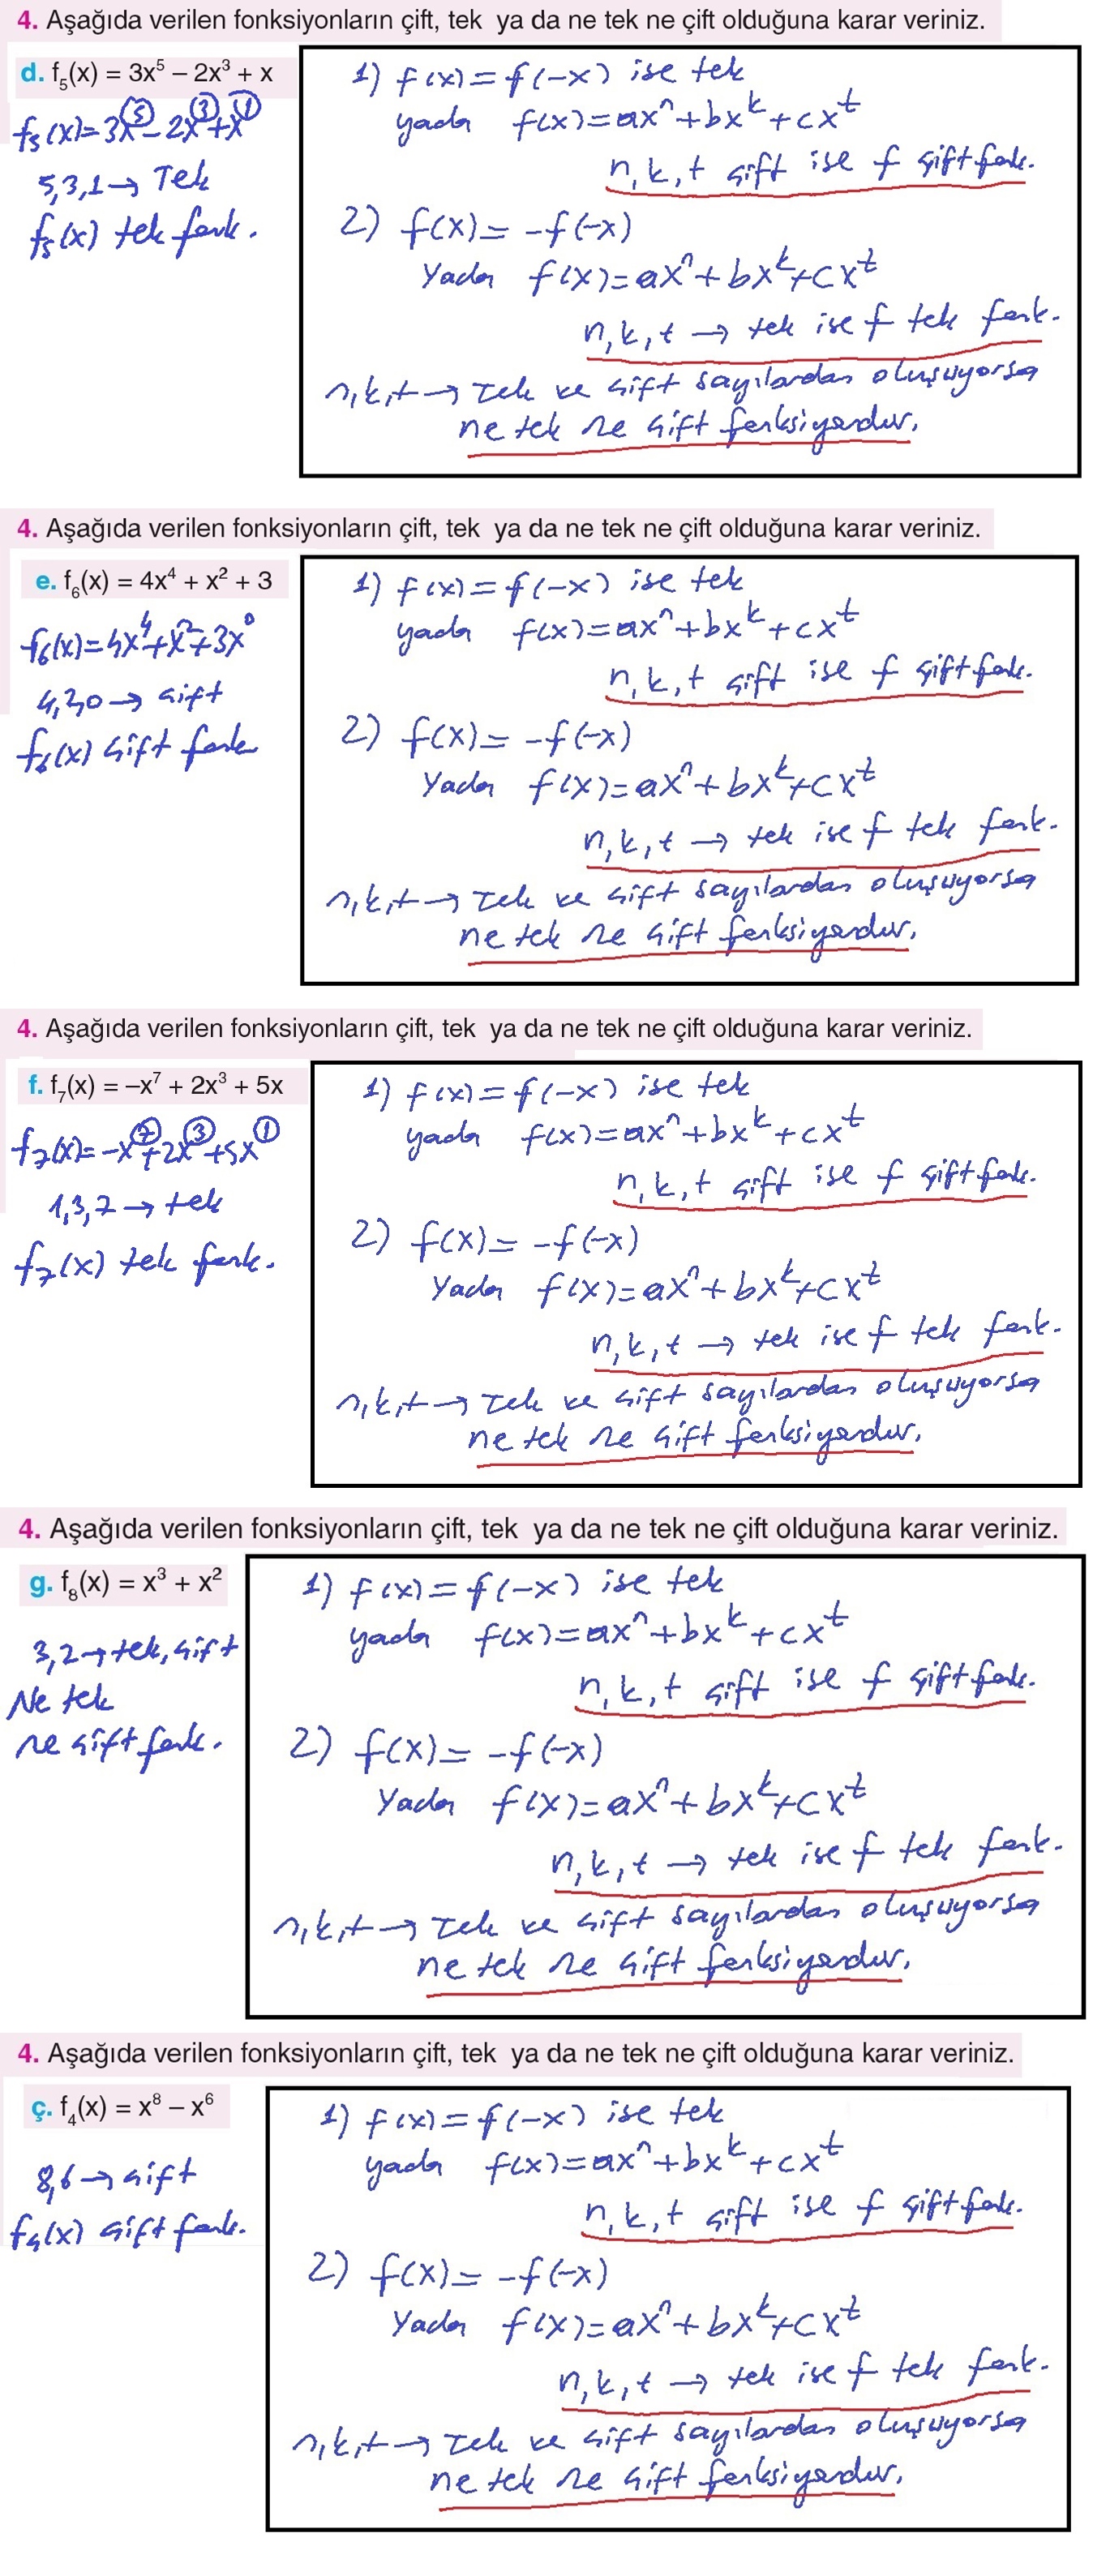 4. Aşağıda verilen fonksiyonların çift, tek ya da ne tek ne çift olduğuna karar veriniz.
d. f₅(x) = 3x⁵ – 2x³ + x
f₅(x)=3x⁵-2x³+x¹
5,3,1→ Tek
f₅(x) tek fonk.
1) f(x)=f(-x) ise tek
yada f(x)=axⁿ+bxᵏ+cxᵗ
n,k,t çift ise f çift fonk.
2) f(x)= -f(-x)
Yada f(x)=axⁿ+bxᵏ+cxᵗ
n,k,t → tek ise f tek fonk.
n,k,t→ Tek ve çift sayılardan oluşuyorsa
ne tek ne çift fonksiyondur.
4. Aşağıda verilen fonksiyonların çift, tek ya da ne tek ne çift olduğuna karar veriniz.
e. f₆(x) = 4x⁴ + x² + 3
f₆(x)=4x⁴+x²+3x⁰
4,2,0→ çift
f₆(x) çift fonk
1) f(x)=f(-x) ise tek
yada f(x)=axⁿ+bxᵏ+cxᵗ
n,k,t çift ise f çift fonk.
2) f(x)= -f(-x)
Yada f(x)=axⁿ+bxᵏ+cxᵗ
n,k,t → tek ise f tek fonk.
n,k,t→ Tek ve çift sayılardan oluşuyorsa
ne tek ne çift fonksiyondur.
4. Aşağıda verilen fonksiyonların çift, tek ya da ne tek ne çift olduğuna karar veriniz.
f. f₇(x) = –x⁷ + 2x³ + 5x
f₇(x)=-x⁷+2x³+5x¹
1,3,7→ tek
f₇(x) tek fonk.
1) f(x)=f(-x) ise tek
yada f(x)=axⁿ+bxᵏ+cxᵗ
n,k,t çift ise f çift fonk.
2) f(x)= -f(-x)
Yada f(x)=axⁿ+bxᵏ+cxᵗ
n,k,t → tek ise f tek fonk.
n,k,t→ Tek ve çift sayılardan oluşuyorsa
ne tek ne çift fonksiyondur.
4. Aşağıda verilen fonksiyonların çift, tek ya da ne tek ne çift olduğuna karar veriniz.
g. f₈(x) = x³ + x²
3,2→tek,çift
Ne tek
ne çift fonk.
1) f(x)=f(-x) ise tek
yada f(x)=axⁿ+bxᵏ+cxᵗ
n,k,t çift ise f çift fonk.
2) f(x)= -f(-x)
Yada f(x)=axⁿ+bxᵏ+cxᵗ
n,k,t → tek ise f tek fonk.
n,k,t→ Tek ve çift sayılardan oluşuyorsa
ne tek ne çift fonksiyondur.
4. Aşağıda verilen fonksiyonların çift, tek ya da ne tek ne çift olduğuna karar veriniz.
ç. f₄(x) = x⁸ – x⁶
8,6→ çift
f₄(x) çift fonk.
1) f(x)=f(-x) ise tek
yada f(x)=axⁿ+bxᵏ+cxᵗ
n,k,t çift ise f çift fonk.
2) f(x)= -f(-x)
Yada f(x)=axⁿ+bxᵏ+cxᵗ
n,k,t → tek ise f tek fonk.
n,k,t→ Tek ve çift sayılardan oluşuyorsa
ne tek ne çift fonksiyondur.